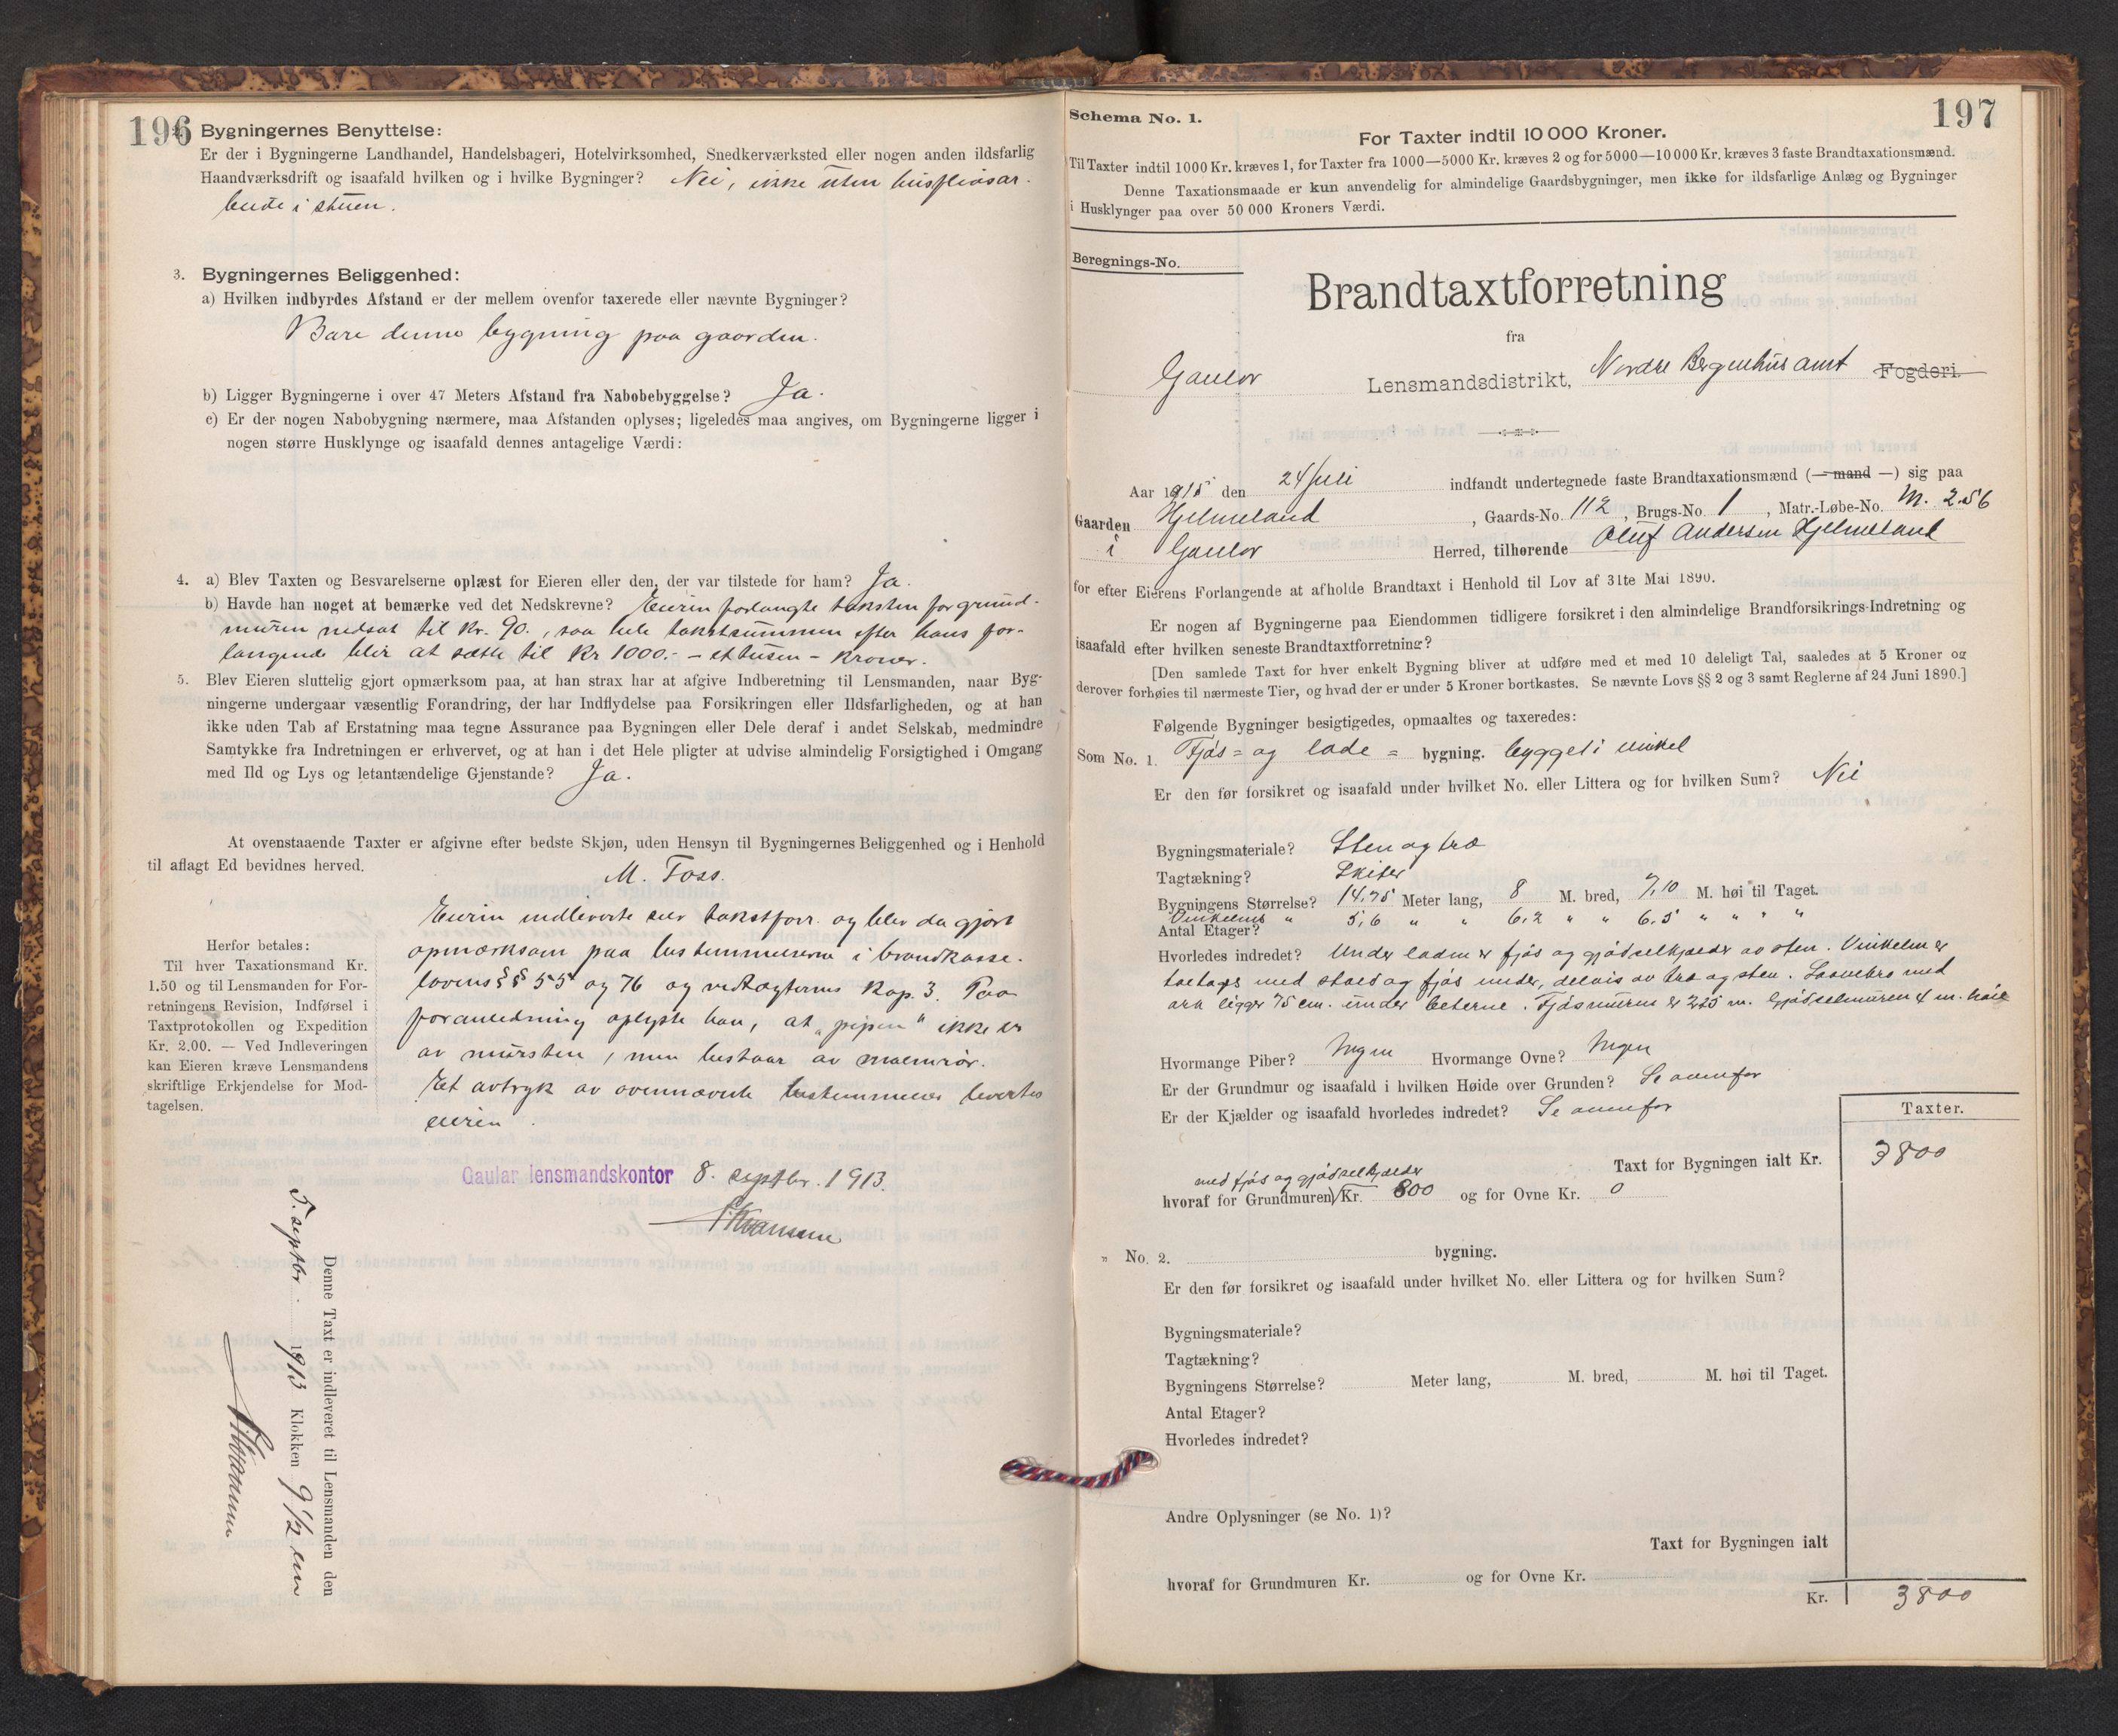 196
Bygningernes Benyttelse:
Er der i Bygningerne Landhandel, Handelsbageri, Hotelvirksomhed, Snedkerværksted eller nogen anden ildsfarlig
Haandværksdrift og isaafald hvilken og i hvilke Bygninger? Nei, ikke uten husflidsar-
beide i stuen.
3. Bygningernes Beliggenhed:
a) Hvilken indbyrdes Afstand er der mellem ovenfor taxerede eller nævnte Bygninger?
Bare denne bygning paa gaarden.
b) Ligger Bygningerne i over 47 Meters Afstand fra Nabobebyggelse? Ja.
c) Er der nogen Nabobygning nærmere, maa Afstanden oplyses; ligeledes maa angives, om Bygningerne ligger i
nogen større Husklynge og isaafald dennes antagelige Værdi:
4. a) Blev Taxten og Besvarelserne oplæst for Eieren eller den, der var tilstede for ham? Ja.
b) Havde han noget at bemærke ved det Nedskrevne? Eieren forlangte taksten for grund-
muren nedsat til Kr. 90., saa hele takstsummen efter hans for-
langende blir at sætte til Kr 1000.- - et tusen - kroner.
5. Blev Eieren sluttelig gjort opmærksom paa, at han strax har at afgive Indberetning til Lensmanden, naar Byg-
ningerne undergaar væsentlig Forandring, der har Indflydelse paa Forsikringen eller Ildsfarligheden, og at han
ikke uden Tab af Erstatning maa tegne Assurance paa Bygningen eller Dele deraf i andet Selskab, medmindre
Samtykke fra Indretningen er erhvervet, og at han i det Hele pligter at udvise almindelig Forsigtighed i Omgang
med Ild og Lys og letantændelige Gjenstande? Ja.
At ovenstaaende Taxter er afgivne efter bedste Skjøn, uden Hensyn til Bygningernes Beliggenhed og i Henhold
til aflagt Ed bevidnes herved.
M. Foss.
Eieren indleverte selv takstforr. og blev da gjort
opmærksom paa bestemmelserne i brandkasse-
lovens §§ 55 og 76 og vedtægternes Kap. 3. Paa
foranledning oplyste han, at "pipen" ikke er
av mursten, men bestaar av malmrør.
Et avtryk av ovennævnte bestemmelser levertes
eieren.
Gaular lensmandskontor 8. septbr. 1913.
Herfor betales:
Til hver Taxationsmand Kr.
1.50 og til Lensmanden for For-
retningens Revision, Indførsel i
Taxtprotokollen og Expedition
Kr. 2.00. — Ved Indleveringen
kan Eieren kræve Lensmandens
skriftlige Erkjendelse for Mod-
tagelsen.
Denne Taxt er indleveret til Lensmanden den
5. septbr. 1913 Klokken 9 1/2 em
197
Schema No. 1.
For Taxter indtil 10 000 Kroner.
Til Taxter indtil 1000 Kr. kræves 1, for Taxter fra 1000—5000 Kr. kræves 2 og for 5000—10 000 Kr. kræves 3 faste Brandtaxationsmænd.
Denne Taxationsmaade er kun anvendelig for almindelige Gaardsbygninger, men ikke for ildsfarlige Anlæg og Bygninger
i Husklynger paa over 50 000 Kroners Værdi.
Beregnings-No.
Brandtaxtforretning
fra
Gaular Lensmandsdistrikt, Nordre Bergenhus amt Fogderi.
Aar 1915 den 24 juli indfandt undertegnede faste Brandtaxationsmænd (— mand —) sig paa
Gaarden Hjelmeland, Gaards-No. 112, Brugs-No. 1, Matr.-Løbe-No. M. 2.56
i Gaular Herred, tilhørende Oluf Andersen Hjelmeland
for efter Eierens Forlangende at afholde Brandtaxt i Henhold til Lov af 31te Mai 1890.
Er nogen af Bygningerne paa Eiendommen tidligere forsikret i den almindelige Brandforsikrings-Indretning og
isaafald efter hvilken seneste Brandtaxtforretning?
[Den samlede Taxt for hver enkelt Bygning bliver at udføre med et med 10 deleligt Tal, saaledes at 5 Kroner og
derover forhøies til nærmeste Tier, og hvad der er under 5 Kroner bortkastes. Se nævnte Lovs §§ 2 og 3 samt Reglerne af 24 Juni 1890.]
Følgende Bygninger besigtigedes, opmaaltes og taxeredes:
Som No. 1. Fjøs- og lade- bygning. bygget i vinkel
Er den før forsikret og isaafald under hvilket No. eller Littera og for hvilken Sum? Nei
Bygningsmateriale? Sten og træ
Tagtækning? Skifer
Bygningens Størrelse? 14,75 Meter lang, 8 M. bred, 7,10 M. høi til Taget.
Vinkelens " 5,6 " " 6,2 " " 6,5 " " " "
Antal Etager?
Hvorledes indredet? Under laden er fjøs og gjødselkjælder av sten. Vinkelen er
toetages med stald og fjøs under, delvis av træ og sten. Laavebro med
ark ligger 75 cm. under beterne. Fjøsmuren er 2,25 m. Gjødselmuren 4 m. høie
Hvormange Piber? Ingen Hvormange Ovne? Ingen
Er der Grundmur og isaafald i hvilken Høide over Grunden? Se ovenfor
Er der Kjælder og isaafald hvorledes indredet? Se ovenfor
Taxter.
Taxt for Bygningen ialt Kr. 3800
med fjøs og gjødselkjælder
hvoraf for Grundmuren Kr. 800 og for Ovne Kr. 0
" No. 2. bygning.
Er den før forsikret og isaafald under hvilket No. eller Littera og for hvilken Sum?
Bygningsmateriale?
Tagtækning?
Bygningens Størrelse? Meter lang, M. bred, M. høi til Taget.
Antal Etager?
Hvorledes indredet?
Andre Oplysninger (se No. 1)?
Taxt for Bygningen ialt
hvoraf for Grundmuren Kr. og for Ovne Kr.
Kr. 3800